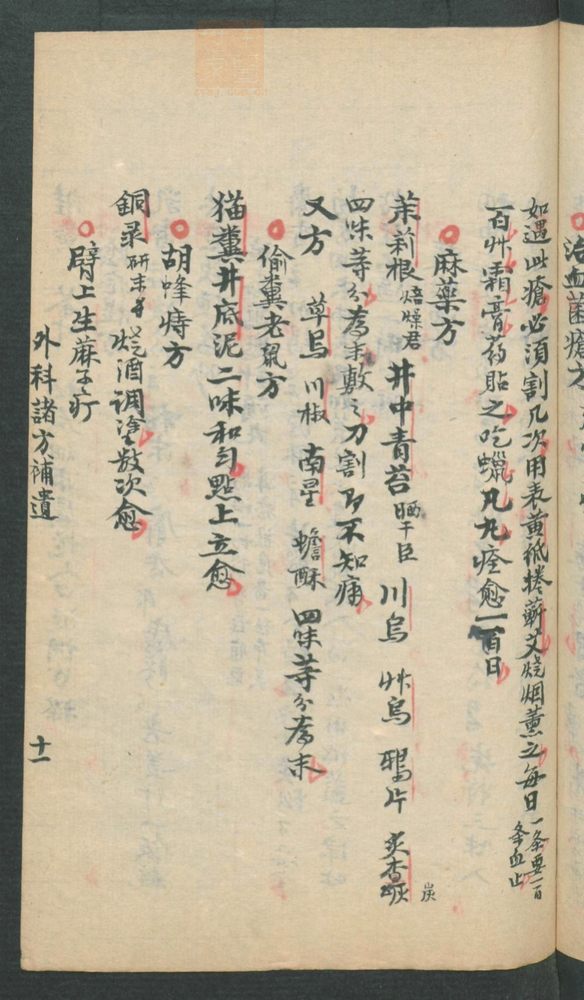 治血菌瘡方
如遇此瘡必須割几次用表黄紙捲蘄艾烧烟薰之每日一条要一百条血止
一百艸霜膏药貼之吃蠟凡丸痊愈一百日
麻藥方
茉莉根焙燥君 井中青苔晒干臣 川烏 艸烏 鴉片 灰 炭
四味等分為末敷之刀割下不知痛
又方 草烏 川椒 南星 蟾酥 四味等分為末
偷糞老鼠方
猫糞井底泥二味和匀點上立愈
胡蜂痔方
銅录研末 烧酒调塗数次愈
臂上生蔴子疔
外科諸方補遺 十一